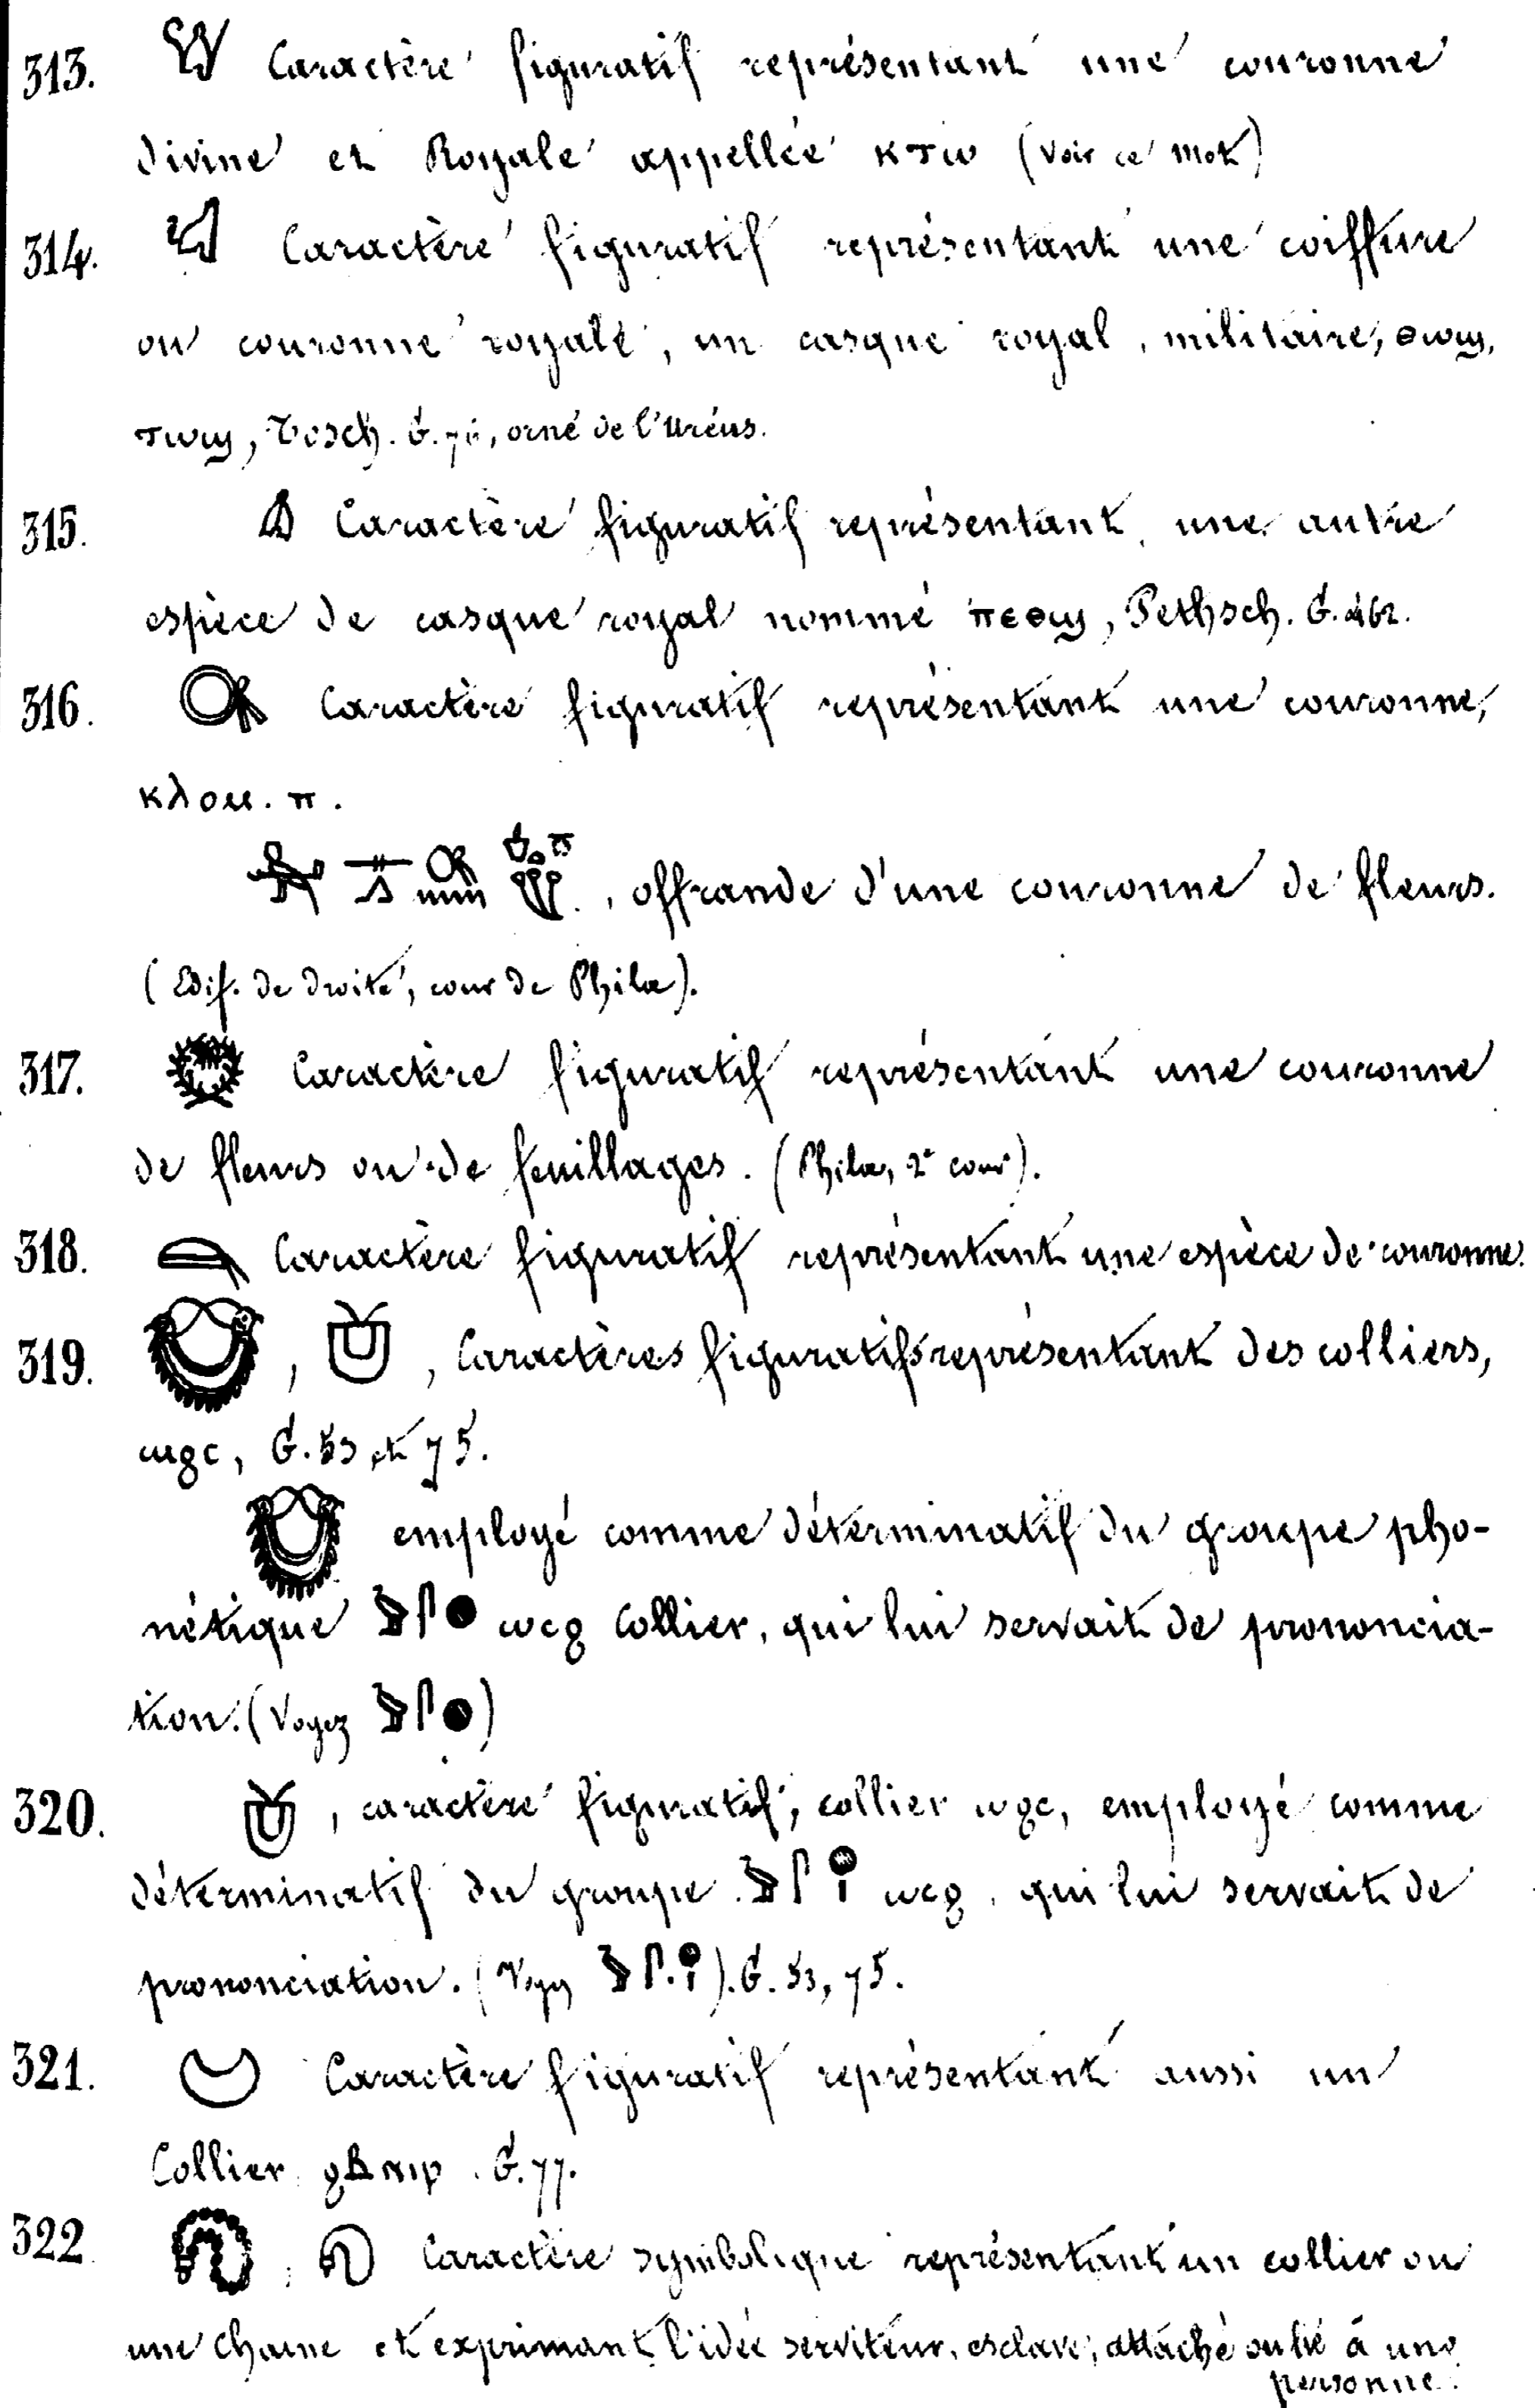 313. Caractère figuratif représentant une couronne
divine et Royale appellée ⲕⲧⲱ (voir ce mot)
314. Caractère figuratif représentant une coiffure
ou couronne royale, un casque royal, militaire, ⲑⲱϣ,
ⲧⲱϣ, Tosch. G. 76, orné de l'Uréus.
315. Caractère figuratif représentant une autre
espèce de casque royal nommé ⲡⲉⲑϣ, Pethsch. G. 462.
316. Caractère figuratif représentant une couronne,
ⲕⲗⲟⲙ. ⲡ.
, offrande d'une couronne de fleurs.
(Edif. de droite, cour de Philæ).
317. Caractère figuratif représentant une couronne
de fleurs ou de feuillages. (Philæ, 2e cour).
318. Caractère figuratif représentant une espèce de couronne.
319. , , Caractères figuratifs représentant des colliers,
ⲱϩⲥ, G. 53 et 75.
employé comme déterminatif du groupe pho-
nétique ⲱⲥϩ collier, qui lui servait de prononcia-
tion. (Voyez )
320. , caractère figuratif, collier ⲱϩⲥ, employé comme
déterminatif du groupe ⲱⲥϩ, qui lui servait de
prononciation. (Voyez ). G. 53, 75.
321. Caractère figuratif représentant aussi un
Collier G. 77.
322. , Caractère symbolique représentant un collier ou
une chaîne et exprimant l'idée serviteur, esclave, attaché ou lié à une
personne.